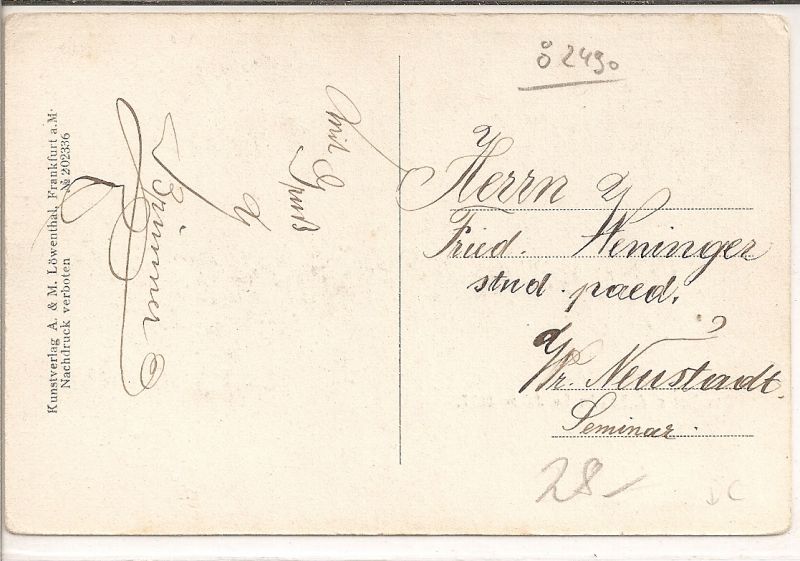 Kunstverlag A. & M. Löwenthal, Frankfurt a.M.
Nachdruck verboten № 202336
Mit
Gruß
Brunner
ö 2490
Herrn
Fried. Weninger
stud. paed.
Wr. Neustadt
Seminar.
28-